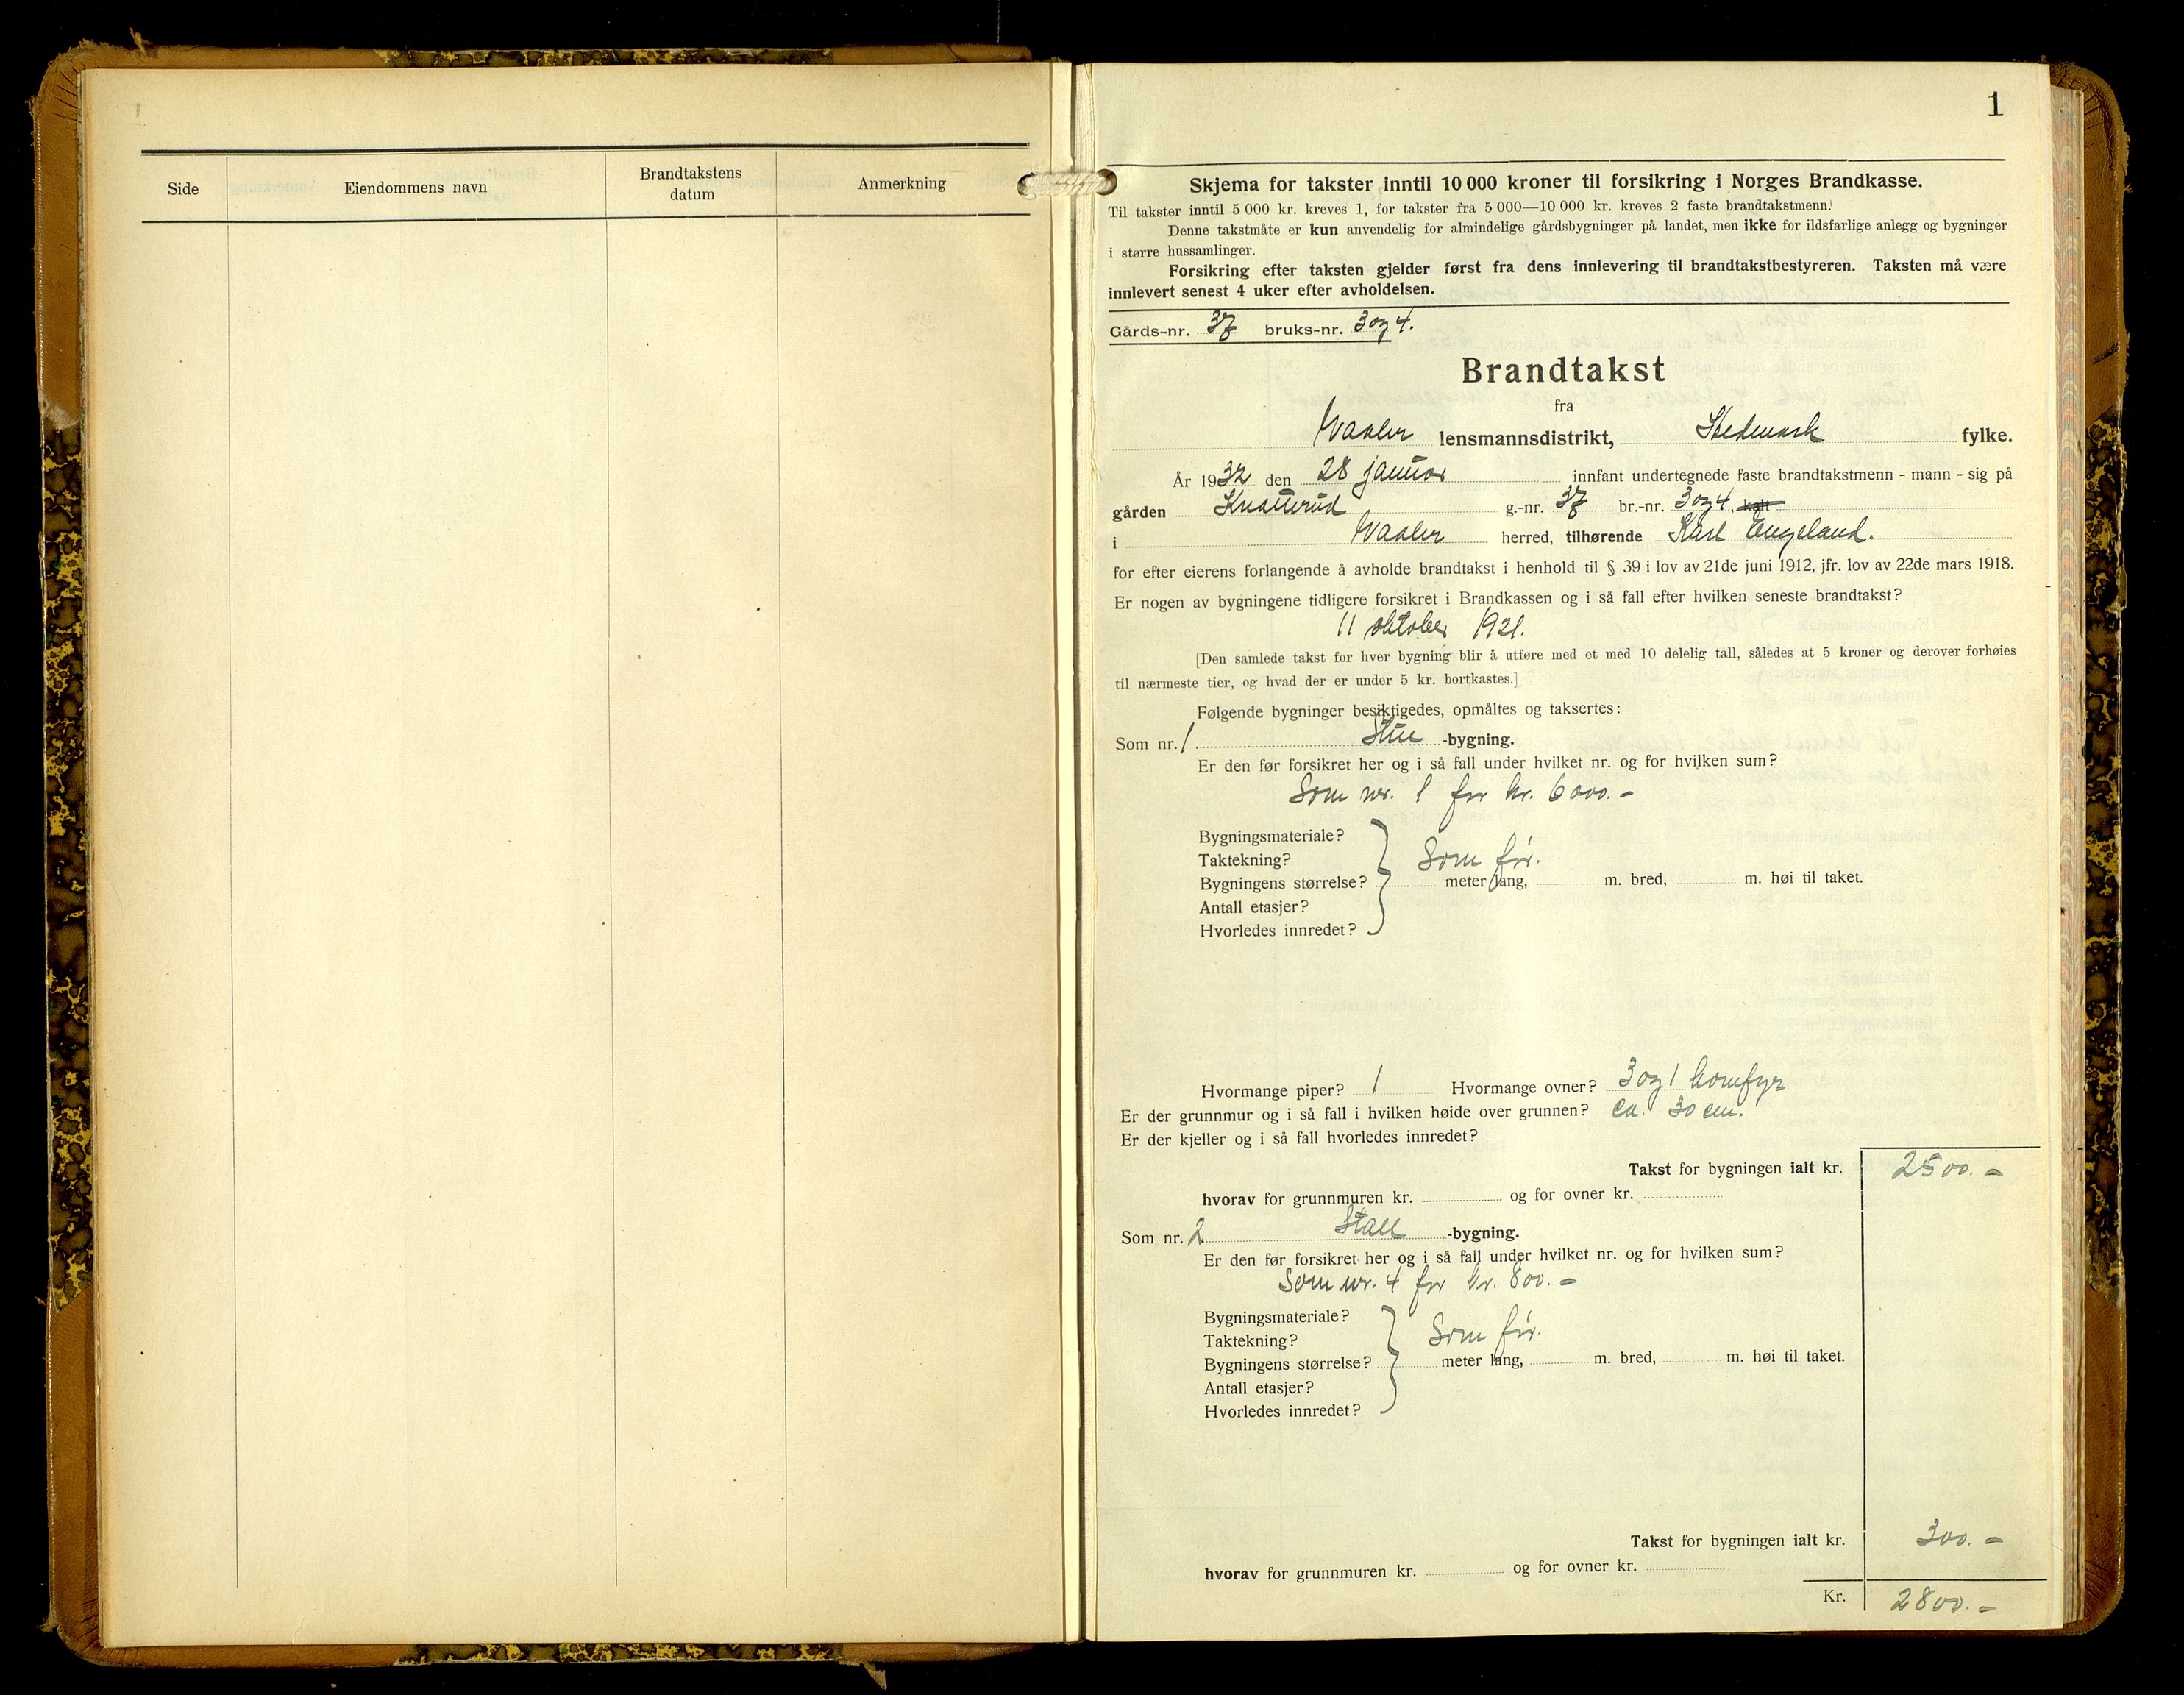 Side Eiendommens navn Brandtakstens datum Anmerkning
1
Skjema for takster inntil 10 000 kroner til forsikring i Norges Brandkasse.
Til takster inntil 5 000 kr. kreves 1, for takster fra 5 000—10 000 kr. kreves 2 faste brandtakstmenn.
Denne takstmåte er kun anvendelig for almindelige gårdsbygninger på landet, men ikke for ildsfarlige anlegg og bygninger
i større hussamlinger.
Forsikring efter taksten gjelder først fra dens innlevering til brandtakstbestyreren. Taksten må være
innlevert senest 4 uker efter avholdelsen.
Gårds-nr. 37 bruks-nr. 3 og 4.
Brandtakst
fra
Vaaler lensmannsdistrikt, Hedmark fylke.
År 1932 den 28 januar innfant undertegnede faste brandtakstmenn - mann - sig på
gården Knatterud g.-nr. 37 br.-nr. 3 og 4, kalt
i Vaaler herred, tilhørende Karl Engeland.
for efter eierens forlangende å avholde brandtakst i henhold til § 39 i lov av 21de juni 1912, jfr. lov av 22de mars 1918.
Er nogen av bygningene tidligere forsikret i Brandkassen og i så fall efter hvilken seneste brandtakst?
11 oktober 1921.
[Den samlede takst for hver bygning blir å utføre med et med 10 delelig tall, således at 5 kroner og derover forhøies
til nærmeste tier, og hvad der er under 5 kr. bortkastes.]
Følgende bygninger besiktigedes, opmåltes og taksertes:
Som nr. 1 Stue -bygning.
Er den før forsikret her og i så fall under hvilket nr. og for hvilken sum?
Som nr. 1 for kr. 6000.-
Bygningsmateriale?
Taktekning? Som før.
Bygningens størrelse? meter lang, m. bred, m. høi til taket.
Antall etasjer?
Hvorledes innredet?
Hvormange piper? 1 Hvormange ovner? 3 og 1 komfyr
Er der grunnmur og i så fall i hvilken høide over grunnen? ca. 30 cm.
Er der kjeller og i så fall hvorledes innredet?
Takst for bygningen ialt kr. 2500.-
hvorav for grunnmuren kr. og for ovner kr.
Som nr. 2 Stall -bygning.
Er den før forsikret her og i så fall under hvilket nr. og for hvilken sum?
Som nr. 4 for kr. 800.-
Bygningsmateriale?
Taktekning? Som før.
Bygningens størrelse? meter lang, m. bred, m. høi til taket.
Antall etasjer?
Hvorledes innredet?
Takst for bygningen ialt kr. 300.-
hvorav for grunnmuren kr. og for ovner kr.
Kr. 2800.-